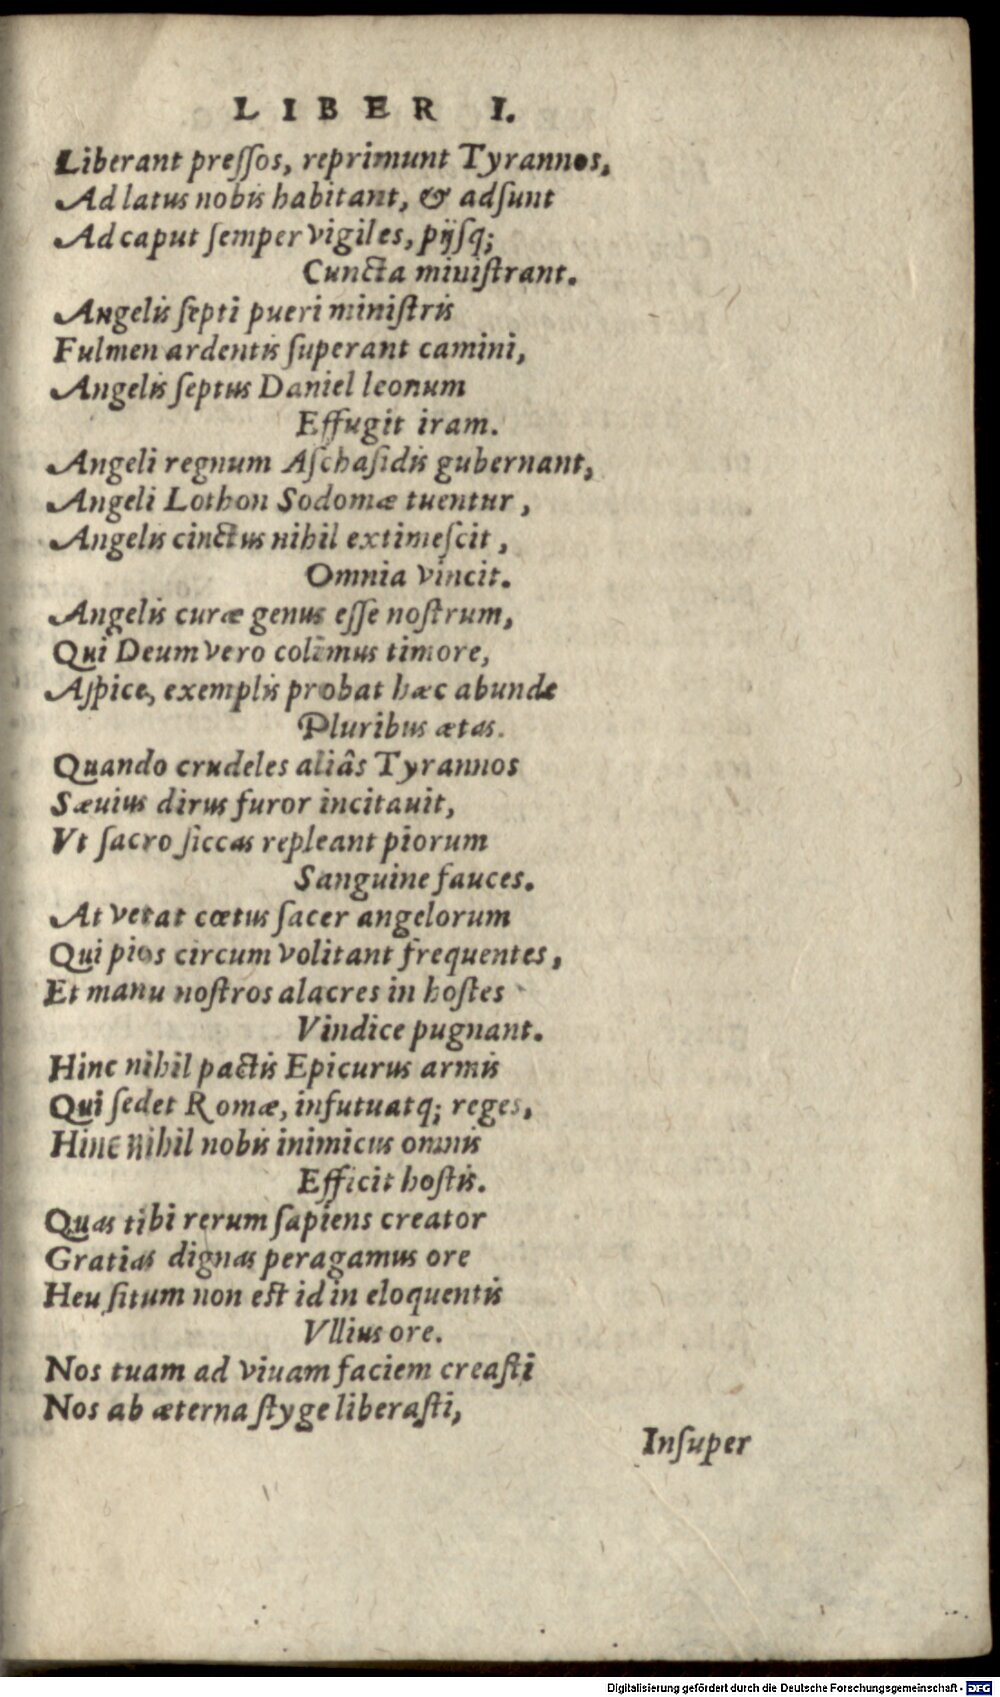 LIBER I.
Liberant preſſos, reprimunt Tyrannos,
Ad latus nobis habitant, & adſunt
Ad caput ſemper vigiles, pijſq;
Cuncta miniſtrant.
Angelis ſepti pueri miniſtris
Fulmen ardentis ſuperant camini,
Angelis ſeptus Daniel leonum
Effugit iram.
Angeli regnum Aſchaſidis gubernant,
Angeli Lothon Sodomæ tuentur,
Angelis cinctus nihil extimeſcit,
Omnia vincit.
Angelis curæ genus eſſe noſtrum,
Qui Deum vero colimus timore,
Aſpice, exemplis probat hæc abunde
Pluribus ætas.
Quando crudeles aliâs Tyrannos
Sæuius dirus furor incitauit,
Vt ſacro ſiccas repleant piorum
Sanguine fauces.
At vetat cœtus ſacer angelorum
Qui pios circum volitant frequentes,
Et manu noſtros alacres in hoſtes
Vindice pugnant.
Hinc nihil pactis Epicurus armis
Qui ſedet Romæ, infutuatq; reges,
Hinc nihil nobis inimicus omnis
Efficit hoſtis.
Quas tibi rerum ſapiens creator
Gratias dignas peragamus ore
Heu ſitum non eſt id in eloquentis
Vllius ore.
Nos tuam ad viuam faciem creaſti
Nos ab æterna ſtyge liberaſti,
Inſuper
Digitalisierung gefördert durch die Deutsche Forschungsgemeinschaft - DFG